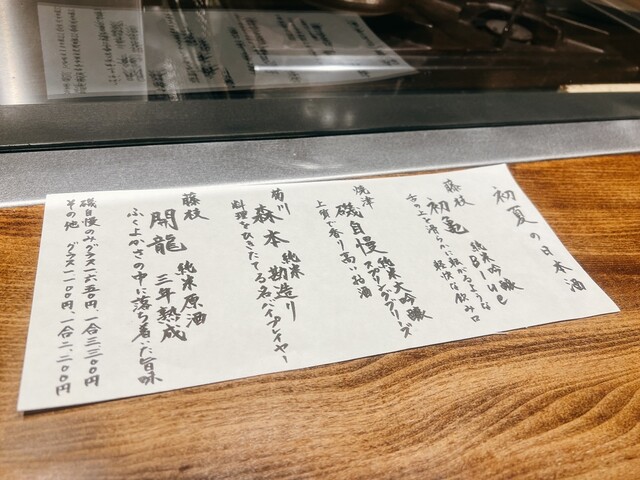 初夏の日本酒
藤枝
初亀 純米吟醸 Blue
舌の上を滑らかに転がるような軽快な飲み口
焼津
磯自慢 純米大吟醸 スプリングブリーズ
上質で香り高い お酒
菊川
森本 純米 勘造り
料理をひきたてる名バイプレイヤー
藤枝
開龍 純米原酒 三年熟成
ふくよかさの中に落ち着いた旨味
磯自慢のみ グラス一六五〇円、一合三三〇〇円
その他 グラス一一〇〇円、一合二、二〇〇円